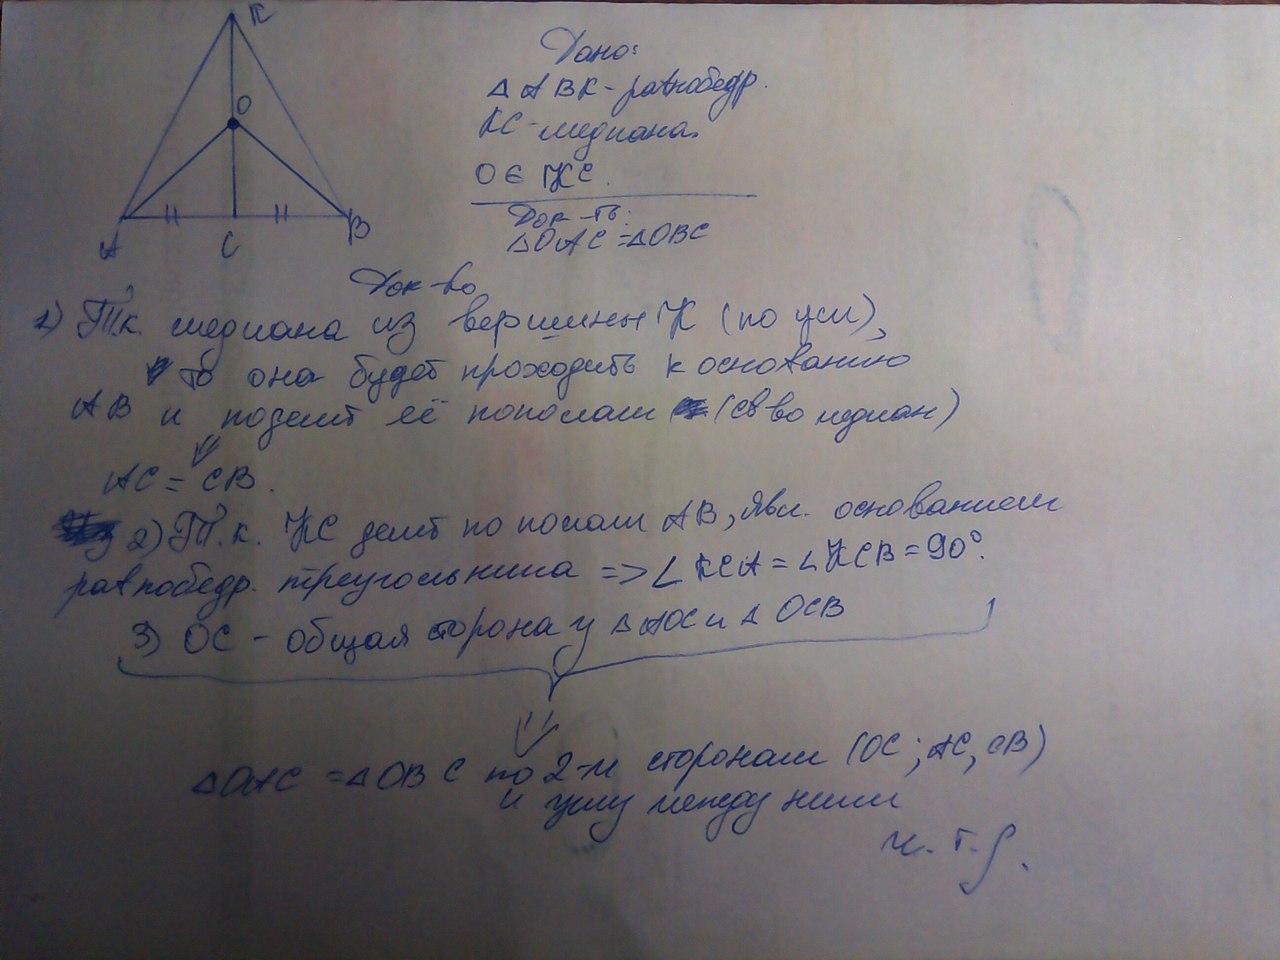 K
O
A
C
B
Дано:
△ ABK - равнобедр.
KC - медиана.
O ∈ KC.
Док-ть:
△OAC = △OBC
Док-во
1) Т.к. медиана из вершины K (по усл),
то она будет проходить к основанию
AB и поделит её пополам (св во медиан)
⇓
AC = CB.
2) Т.к. KC делит по полам AB, явл. основанием
равнобедр. треугольника => ∠ KCA = ∠ KCB = 90°.
3) OC - общая сторона у △ AOC и △ OCB
⇓
△OAC = △OBC по 2-м сторонам (OC; AC, CB)
и углу между ними
ч. т. д.